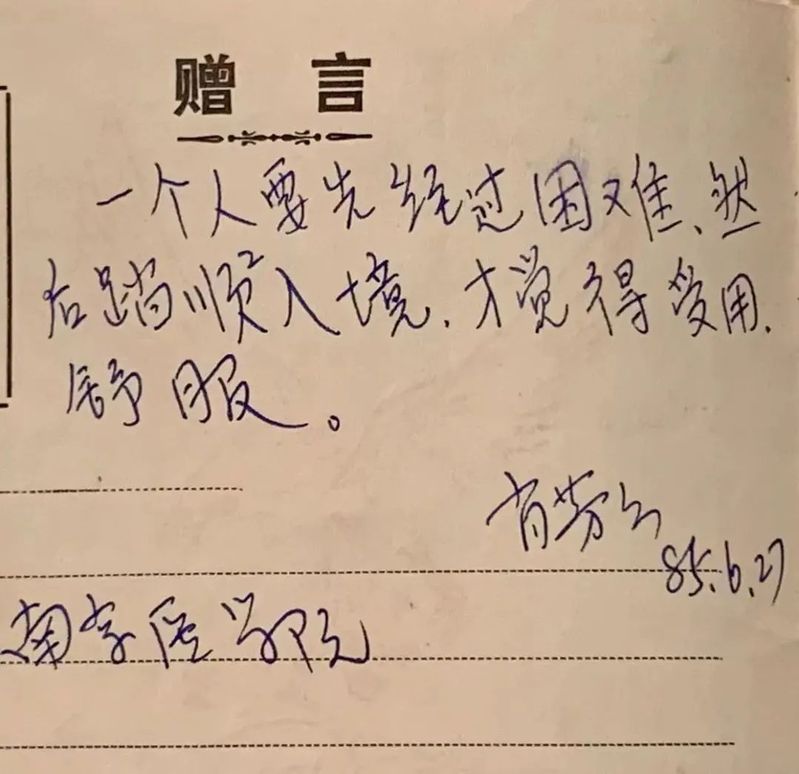 赠言
一个人要先经过困难、然
后踏顺入境.才觉得受用.
舒服。
肖劳
85.6.27
南京医学院